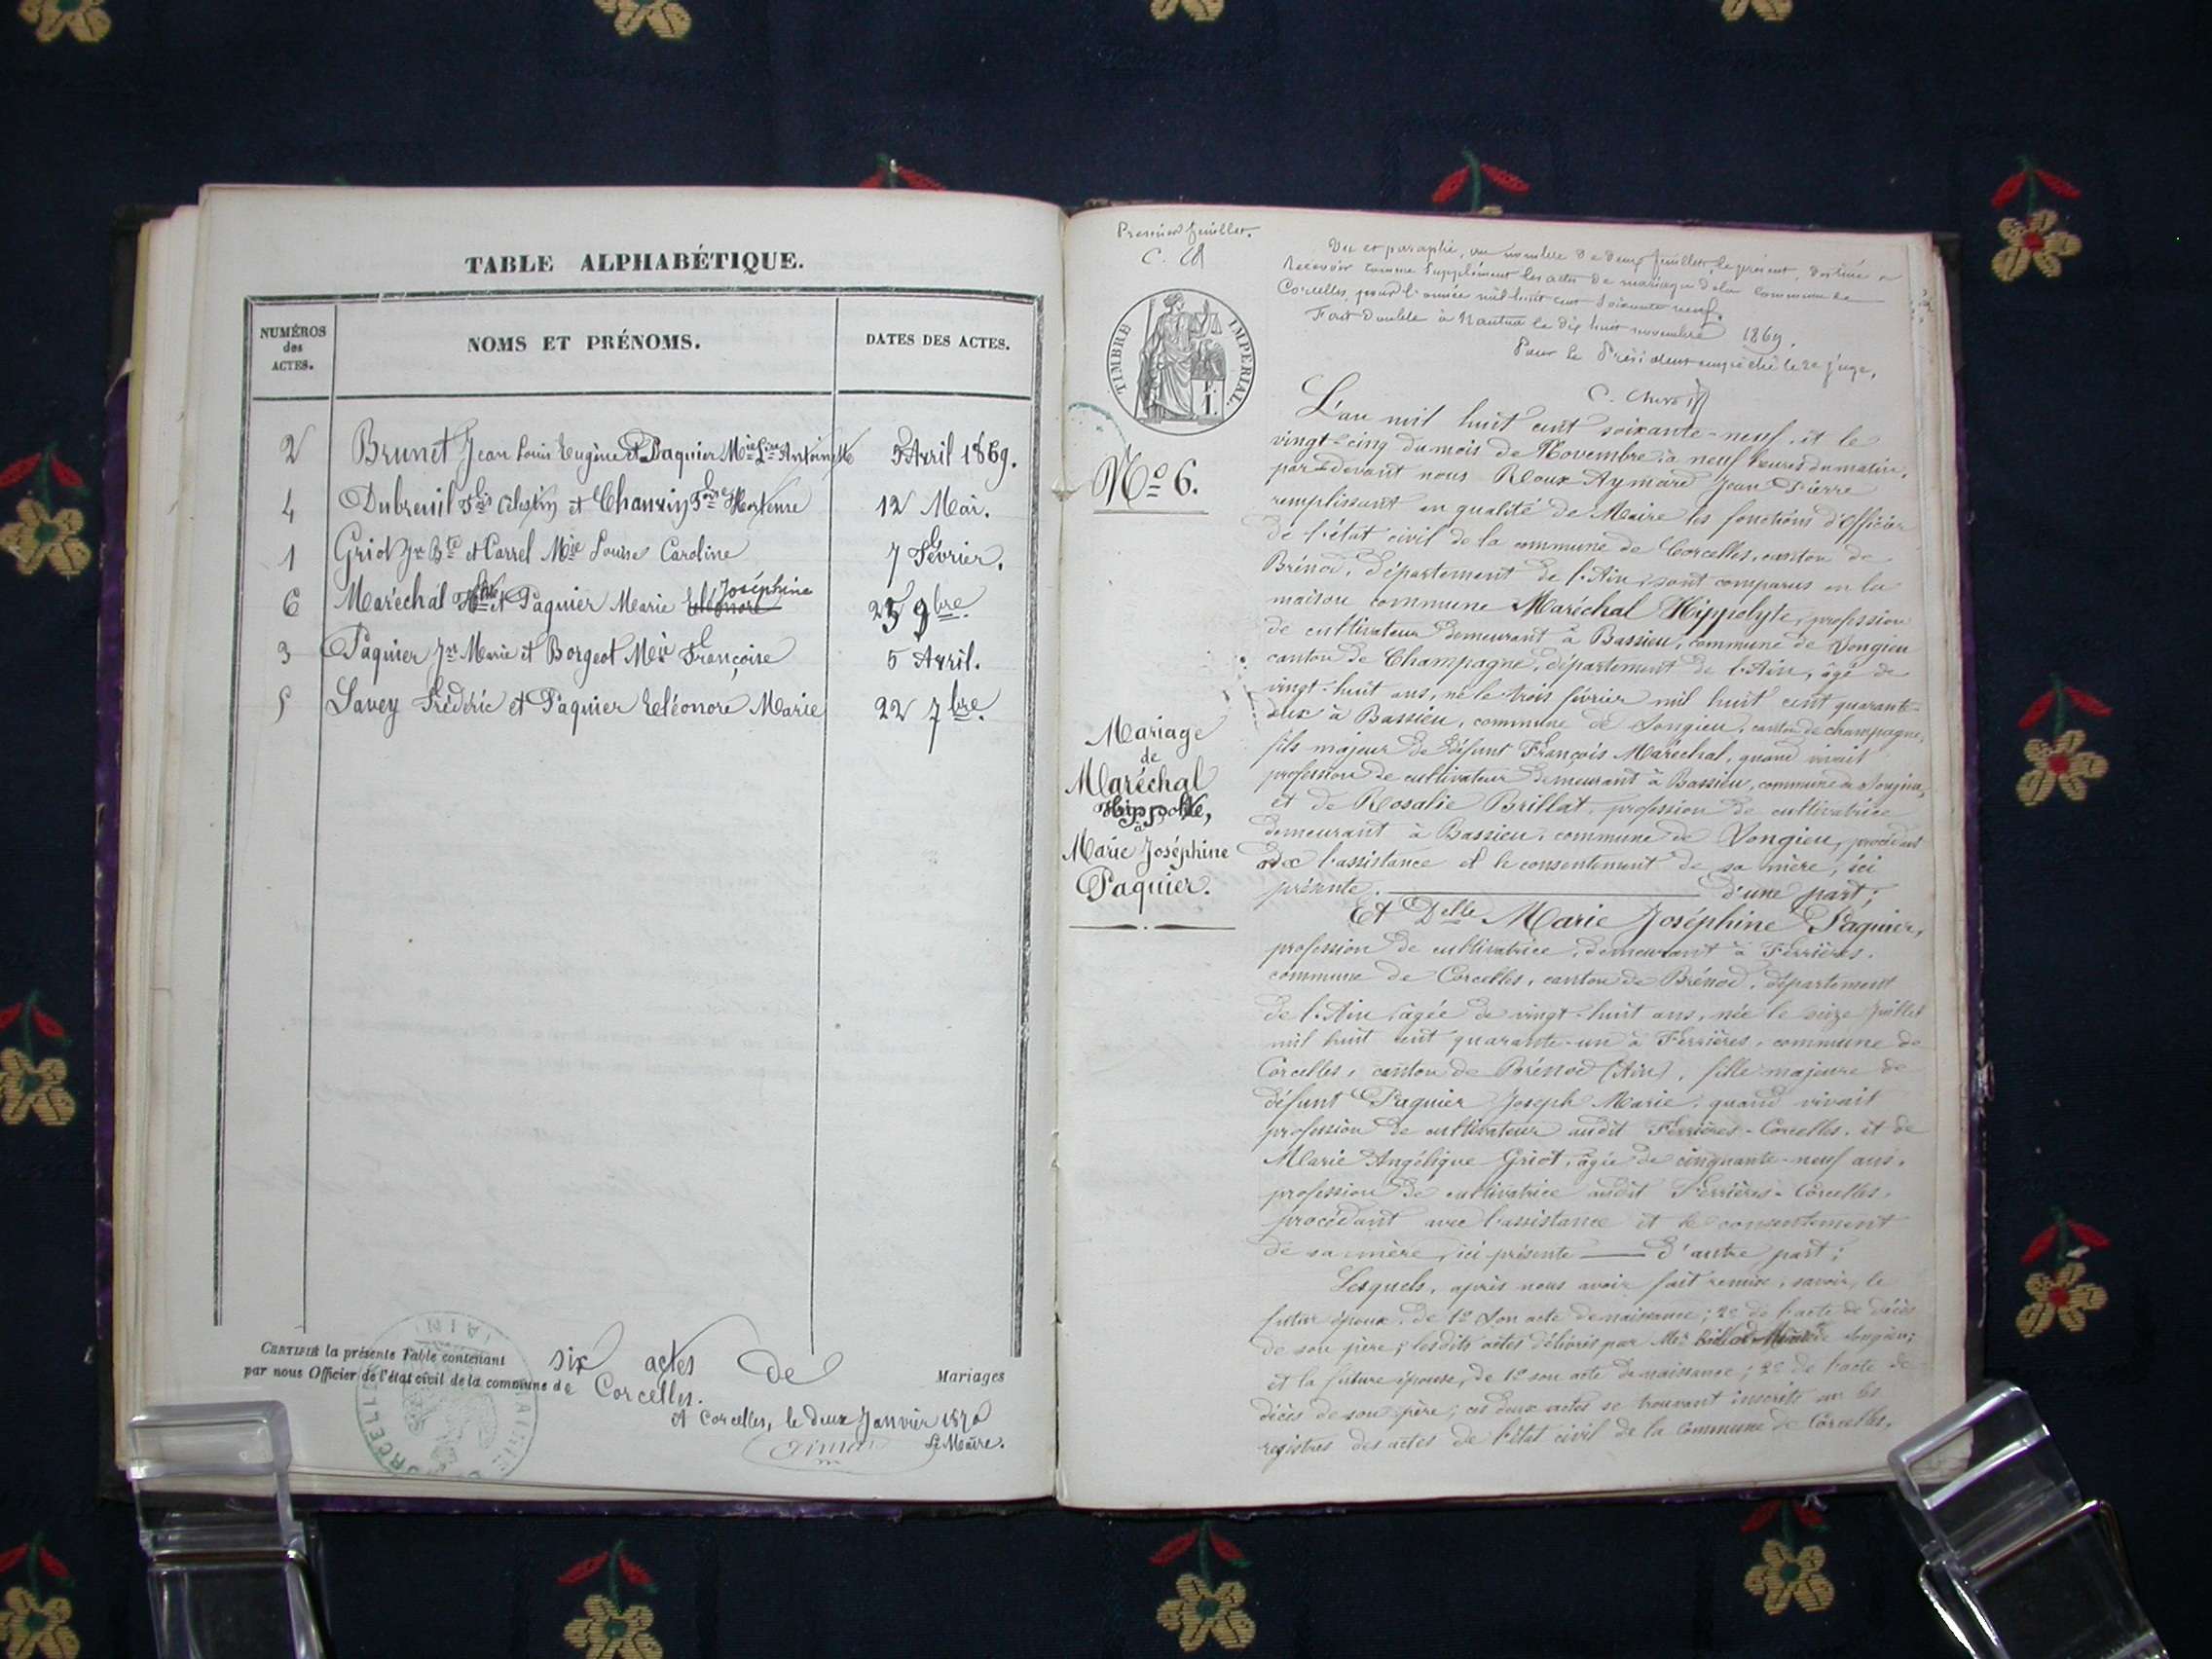 TABLE ALPHABÉTIQUE.
NUMÉROS des ACTES.
NOMS ET PRÉNOMS.
DATES DES ACTES.
2 Brunet Jean Louis Eugène et Paquier Mie Antoinette 5 Avril 1869.
4 Dubreuil Fois Célestin et Chanvin Hortense 12 Mai.
1 Griot Jn Bte et Carrel Mie Louise Caroline 7 Février.
6 Maréchal Hte et Paquier Marie Eléonore Joséphine 25 9bre
3 Paquier Jn Marie et Borgeot Mie Françoise 5 Avril.
5 Savey Frédéric et Paquier Eeléonore Marie 22 7bre.
CERTIFIÉ la présente Table contenant six actes de Mariages
par nous Officier de l'état civil de la commune de Corcelles.
A Corcelles, le deux Janvier 1870
Le Maire.
Premier feuillet.
Vu et paraphé, au nombre de deux feuillets, le présent, destiné a
recevoir comme supplément les actes de mariage de la commune de
Corcelles, pour l'année mil huit cent soixante neuf.
Fait double à Nantua le dix huit novembre 1869.
Pour le Président empêché le 2e juge,
TIMBRE IMPERIAL.
No 6.
Mariage
de
Maréchal
Hippolyte,
à
Marie Joséphine
Paquier.
L'an mil huit cent soixante-neuf, et le
vingt-cinq du mois de Novembre à neuf heures du matin,
par-devant nous Roux Aymard Jean Pierre
remplissant en qualité de Maire les fonctions d'Officier
de l'état civil de la commune de Corcelles, canton de
Brénod, département de l'Ain, sont comparus en la
maison commune Maréchal Hippolyte, profession
de cultivateur demeurant à Bassieu, commune de Vongieu
canton de Champagne, département de l'Ain, âgé de
vingt-huit ans, né le trois février mil huit cent quarante-
deux à Bassieu, commune de Songieu, canton de champagne,
fils majeur de défunt François Maréchal, quand vivait
profession de cultivateur demeurant à Bassieu, commune de Songieu,
et de Rosalie Brillat, profession de cultivatrice
demeurant à Bassieu, commune de Vongieu, procédant
avec l'assistance et le consentement de sa mère, ici
présente. d'une part;
Et Delle Marie Joséphine Paquier,
profession de cultivatrice, demeurant à Ferrières,
commune de Corcelles, canton de Brénod, département
de l'Ain, âgée de vingt-huit ans, née le seize juillet
mil huit cent quarante-un à Ferrières, commune de
Corcelles, canton de Brénod (Ain), fille majeure de
défunt Paquier Joseph Marie, quand vivait
profession de cultivateur audit Ferrières-Corcelles, et de
Marie Angélique Griot, âgée de cinquante-neuf ans,
profession de cultivatrice audit Ferrières-Corcelles,
procédant avec l'assistance et le consentement
de sa mère, ici présente d'autre part;
Lesquels, après nous avoir fait remise, savoir, le
futur époux, de 1o son acte de naissance; 2o de l'acte de décès
de son père; lesdits actes délivrés par Mr de Songieu;
et la future épouse, de 1o son acte de naissance; 2o de l'acte de
décès de son père; ces deux actes se trouvant inscrits sur les
registres des actes de l'état civil de la commune de Corcelles,